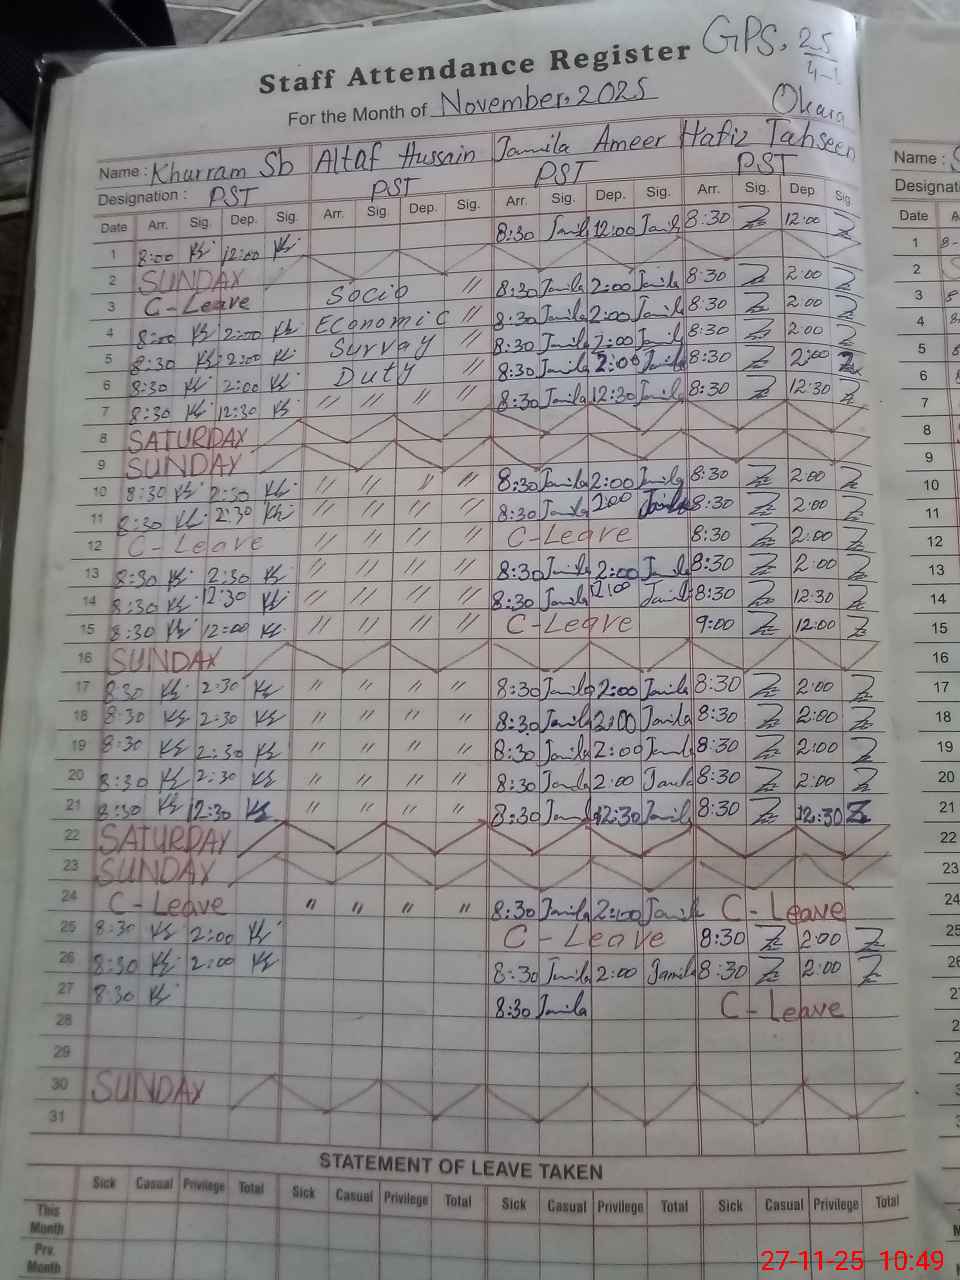 GPS. 25
4-L
Okara
Staff Attendance Register
For the Month of November, 2025
Name : Khurram Sb Altaf Hussain Jamila Ameer Hafiz Tahseen
Designation : PST PST PST PST
Date Arr. Sig. Dep. Sig. Arr. Sig. Dep. Sig. Arr. Sig. Dep. Sig. Arr. Sig. Dep Sig.
1 8:00 12:00 8:30 Jamila 12:00 Jamila 8:30 12:00
2 SUNDAY
3 C-Leave Socio " 8:30 Jamila 2:00 Jamila 8:30 2:00
4 8:00 2:00 Economic " 8:30 Jamila 2:00 Jamila 8:30 2:00
5 8:30 2:00 Survay " 8:30 Jamila 2:00 Jamila 8:30 2:00
6 8:30 2:00 Duty " 8:30 Jamila 2:00 Jamila 8:30 2:00
7 8:30 12:30 " " " " 8:30 Jamila 12:30 Jamila 8:30 12:30
8 SATURDAY
9 SUNDAY
10 8:30 2:30 " " " " 8:30 Jamila 2:00 Jamila 8:30 2:00
11 8:30 2:30 " " " " 8:30 Jamila 2:00 Jamila 8:30 2:00
12 C-Leave " " " " C-Leave 8:30 2:00
13 8:30 2:30 " " " " 8:30 Jamila 2:00 Jamila 8:30 2:00
14 8:30 12:30 " " " " 8:30 Jamila Jamila 8:30 12:30
15 8:30 12:00 " " " " C-Leave 9:00 12:00
16 SUNDAY
17 8:30 2:30 " " " " 8:30 Jamila 2:00 Jamila 8:30 2:00
18 8:30 2:30 " " " " 8:30 Jamila 2:00 Jamila 8:30 2:00
19 8:30 2:30 " " " " 8:30 Jamila 2:00 Jamila 8:30 2:00
20 8:30 2:30 " " " " 8:30 Jamila 2:00 Jamila 8:30 2:00
21 8:30 12:30 " " " " 8:30 Jamila 12:30 Jamila 8:30 12:30
22 SATURDAY
23 SUNDAY
24 C-Leave " " " " 8:30 Jamila 2:00 Jamila C-Leave
25 8:30 2:00 C-Leave 8:30 2:00
26 8:30 2:00 8:30 Jamila 2:00 Jamila 8:30 2:00
27 8:30 8:30 Jamila C-Leave
28
29
30 SUNDAY
31
STATEMENT OF LEAVE TAKEN
Sick Casual Privilege Total Sick Casual Privilege Total Sick Casual Privilege Total Sick Casual Privilege Total
This Month
Prv. Month
Name :
Designati
Date
1
2
3
4
5
6
7
8
9
10
11
12
13
14
15
16
17
18
19
20
21
22
23
24
25
26
27-11-25 10:49